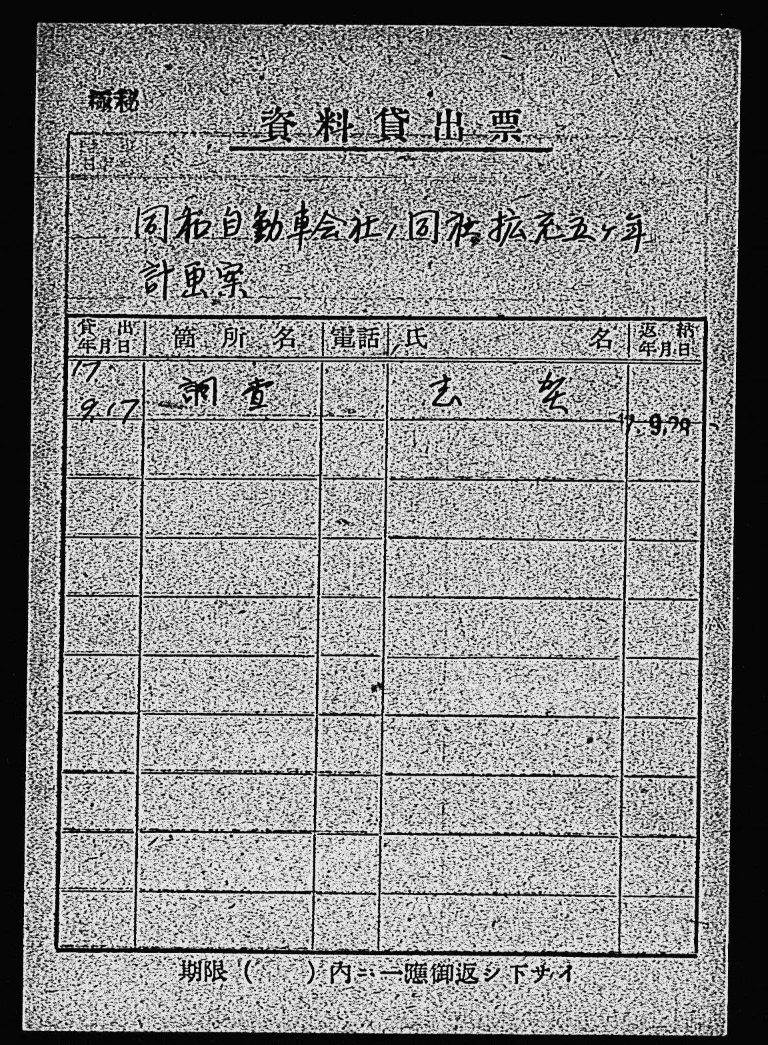 極秘
資料貸出票
同和自動車会社ノ同社拡充五ヶ年
計画案
貸出年月日 箇所名 電話 氏名 返納年月日
17.
9.17 調査
17.9.28
期限（　　）内ニ一應御返シ下サイ